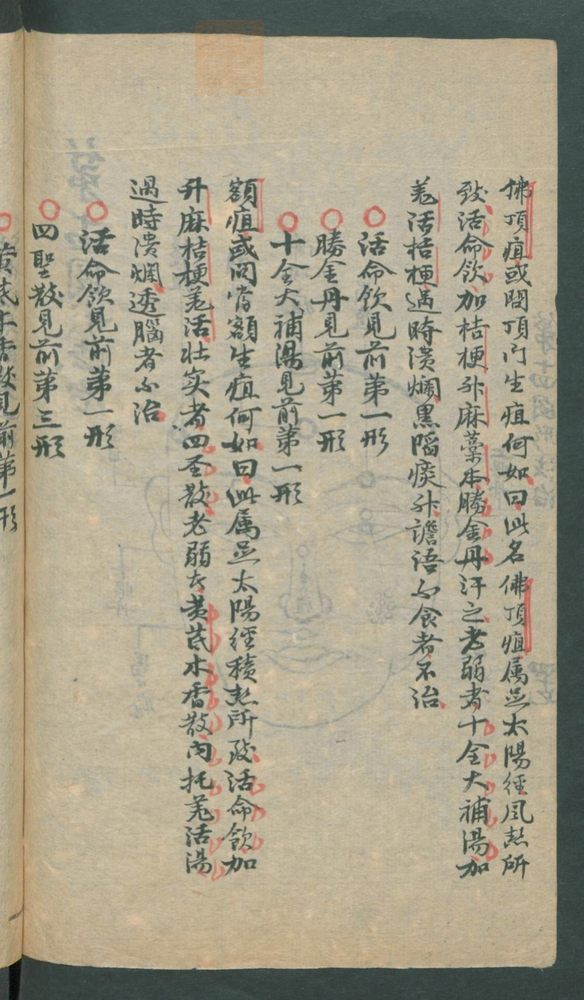 佛頂疽或問頂門生疽何如曰此名佛頂疽属足太陽經風熱所
致活命飲加桔梗升麻藁本勝金丹汗之老弱者十全大補湯加
羗活桔梗過時潰爛黒陷痰升譫語不食者不治
活命飲見前第一形
勝金丹見前第一形
十全大補湯見前第一形
額疽或問當額生疽何如曰此属足太陽經積熱所致活命飲加
升麻桔梗羗活壮实者四圣散老弱者黄芪木香散内托羗活湯
過時潰爛透腦者不治
活命飲見前第一形
四聖散見前第三形
黄芪木香散見前第一形